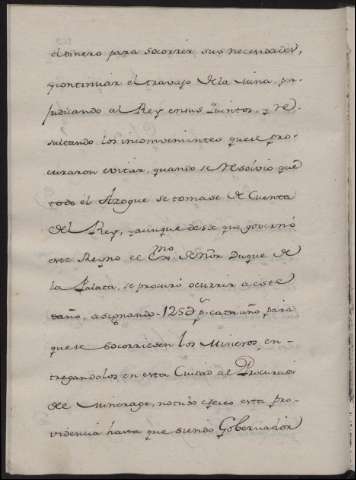 el dinero para socorrer sus necesidades,
y continuar el travajo de la mina, per-
judicando al Rey en sus Quintos, y re-
sultando los inconvenientes, que se pro-
curaron evitar, quando se resolvió que
todo el Azogue se tomase de Cuenta
del Rey, y aunque desde que governó
este Reyno el Exmo Señor Duque de
la Palata, se procuró ocurrir a este
daño, asignando 125 ps. cada año, para
que se socorriesen los Mineros, en-
tregandolos en esta Ciudad al Procurador
del Minerage, no tubo efecto esta pro-
videncia hasta que siendo Gobernador